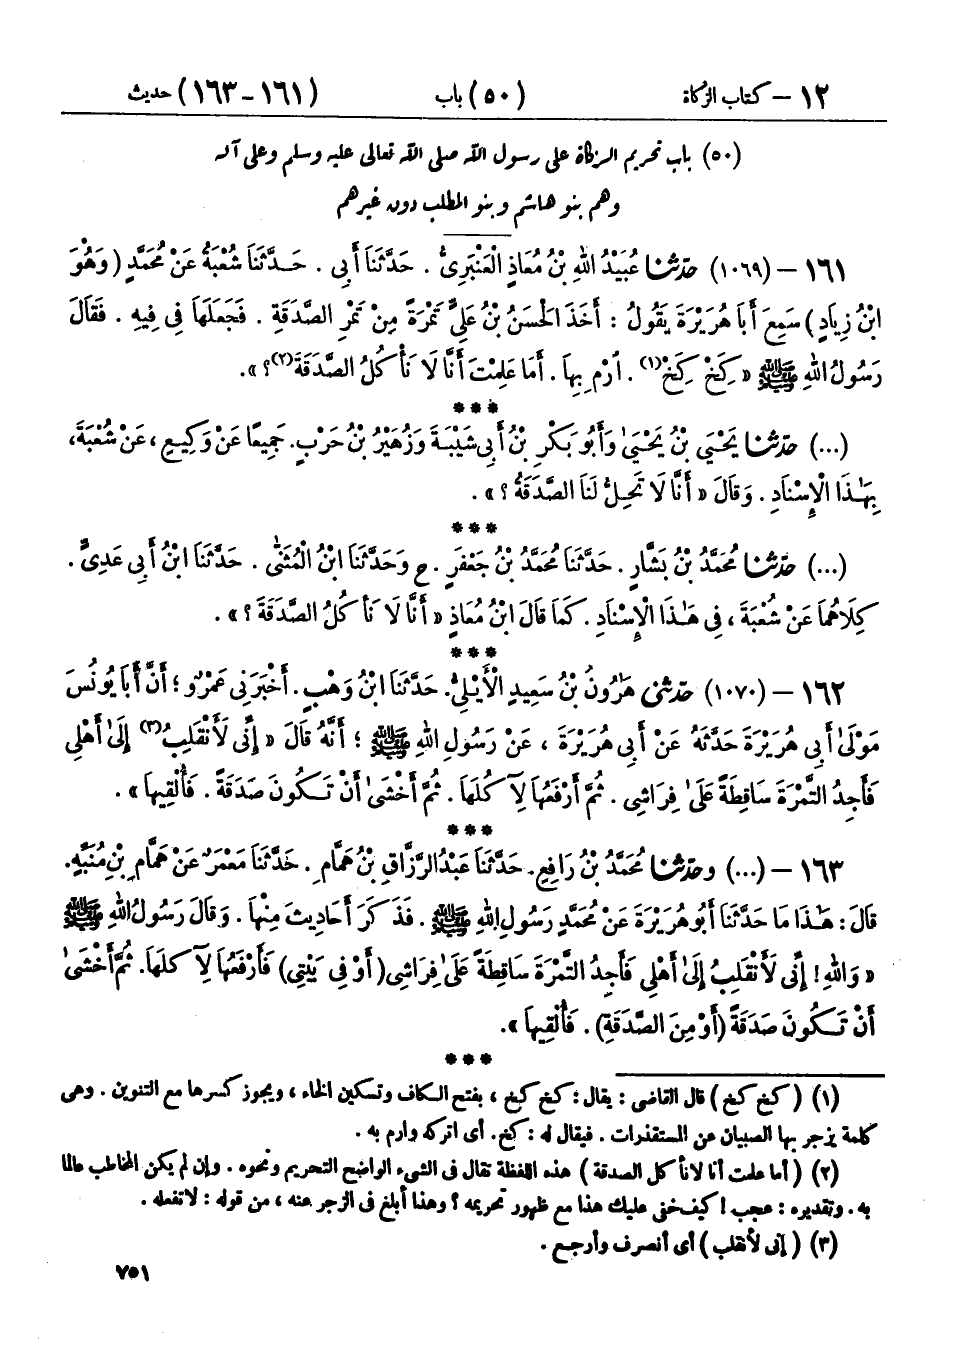 ١٢ – كتاب الزكاة (٥٠) باب (١٦١-١٦٣) حديث
(٥٠) باب تحريم الزكاة على رسول الله صلى الله تعالى عليه وسلم وعلى آله
وهم بنو هاشم وبنو المطلب دون غيرهم
١٦١ – (١٠٦٩) حدّثنا عُبَيْدُ اللهِ بْنُ مُعَاذٍ الْعَنْبَرِيُّ . حَدَّثَنَا أَبِي . حَدَّثَنَا شُعْبَةُ عَنْ مُحَمَّدٍ (وَهُوَ
ابْنُ زِيَادٍ) سَمِعَ أَبَا هُرَيْرَةَ يَقُولُ : أَخَذَ الْحَسَنُ بْنُ عَلِيٍّ تَمْرَةً مِنْ تَمْرِ الصَّدَقَةِ . فَجَعَلَهَا فِي فِيهِ . فَقَالَ
رَسُولُ اللهِ ﷺ « كَِخْ كَِخْ(١) . ارْمِ بِهَا . أَمَا عَلِمْتَ أَنَّا لَا نَأْكُلُ الصَّدَقَةَ(٢) ؟ » .
***
(...) حدّثنا يَحْيَى بْنُ يَحْيَىٰ وَأَبُو بَكْرِ بْنُ أَبِي شَيْبَةَ وَزُهَيْرُ بْنُ حَرْبٍ. جَمِيعًا عَنْ وَكِيعٍ ، عَنْ شُعْبَةَ ،
بِهَـٰذَا الْإِسْنَادِ . وَقَالَ « أَنَّا لَا تَحِلُّ لَنَا الصَّدَقَةُ ؟ » .
***
(...) حدّثنا مُحَمَّدُ بْنُ بَشَّارٍ . حَدَّثَنَا مُحَمَّدُ بْنُ جَعْفَرٍ . ح وَحَدَّثَنَا ابْنُ الْمُثَنَّىٰ . حَدَّثَنَا ابْنُ أَبِي عَدِيٍّ .
كِلَاهُمَا عَنْ شُعْبَةَ ، فِي هَـٰذَا الْإِسْنَادِ . كَمَا قَالَ ابْنُ مُعَاذٍ « أَنَّا لَا نَأْكُلُ الصَّدَقَةَ ؟ » .
***
١٦٢ – (١٠٧٠) حدّثني هَـٰرُونُ بْنُ سَعِيدٍ الْأَيْلِيُّ. حَدَّثَنَا ابْنُ وَهْبٍ . أَخْبَرَنِي عَمْرٌو ؛ أَنَّ أَبَا يُونُسَ
مَوْلَىٰ أَبِي هُرَيْرَةَ حَدَّثَهُ عَنْ أَبِي هُرَيْرَةَ ، عَنْ رَسُولِ اللهِ ﷺ ؛ أَنَّهُ قَالَ « إِنِّي لَأَنْقَلِبُ(٣) إِلَىٰ أَهْلِي
فَأَجِدُ التَّمْرَةَ سَاقِطَةً عَلَىٰ فِرَاشِي . ثُمَّ أَرْفَعُهَا لِآكُلَهَا . ثُمَّ أَخْشَىٰ أَنْ تَكُونَ صَدَقَةً . فَأُلْقِيهَا » .
***
١٦٣ – (...) وحدّثنا مُحَمَّدُ بْنُ رَافِعٍ. حَدَّثَنَا عَبْدُ الرَّزَّاقِ بْنُ هَمَّامٍ . حَدَّثَنَا مَعْمَرٌ عَنْ هَمَّامِ بْنِ مُنَبِّهٍ.
قَالَ: هَـٰذَا مَا حَدَّثَنَا أَبُو هُرَيْرَةَ عَنْ مُحَمَّدٍ رَسُولِ اللهِ ﷺ . فَذَكَرَ أَحَادِيثَ مِنْهَا . وَقَالَ رَسُولُ اللهِ ﷺ
« وَاللهِ ! إِنِّي لَأَنْقَلِبُ إِلَىٰ أَهْلِي فَأَجِدُ التَّمْرَةَ سَاقِطَةً عَلَىٰ فِرَاشِي ( أَوْ فِي بَيْتِي ) فَأَرْفَعُهَا لِآكُلَهَا. ثُمَّ أَخْشَىٰ
أَنْ تَكُونَ صَدَقَةً (أَوْ مِنَ الصَّدَقَةِ) . فَأُلْقِيهَا » .
***
(١) ( كخ كخ ) قال القاضى : يقال : كخ كخ ، بفتح الكاف وتسكين الخاء ، ويجوز كسرها مع التنوين . وهى
كلمة يزجر بها الصبيان عن المستقذرات . فيقال له : كخ. أى اتركه وارم به .
(٢) ( أما علمت أنا لانأ كل الصدقة ) هذه اللفظة تقال فى الشىء الواضح التحريم ونحوه . وإن لم يكن المخاطب عالما
به . وتقديره : عجب ! كيف خفى عليك هذا مع ظهور تحريمه ؟ وهذا أبلغ فى الزجر عنه ، من قوله : لاتفعله .
(٣) ( إنى لأنقلب ) أى أنصرف وأرجع .
٧٥١